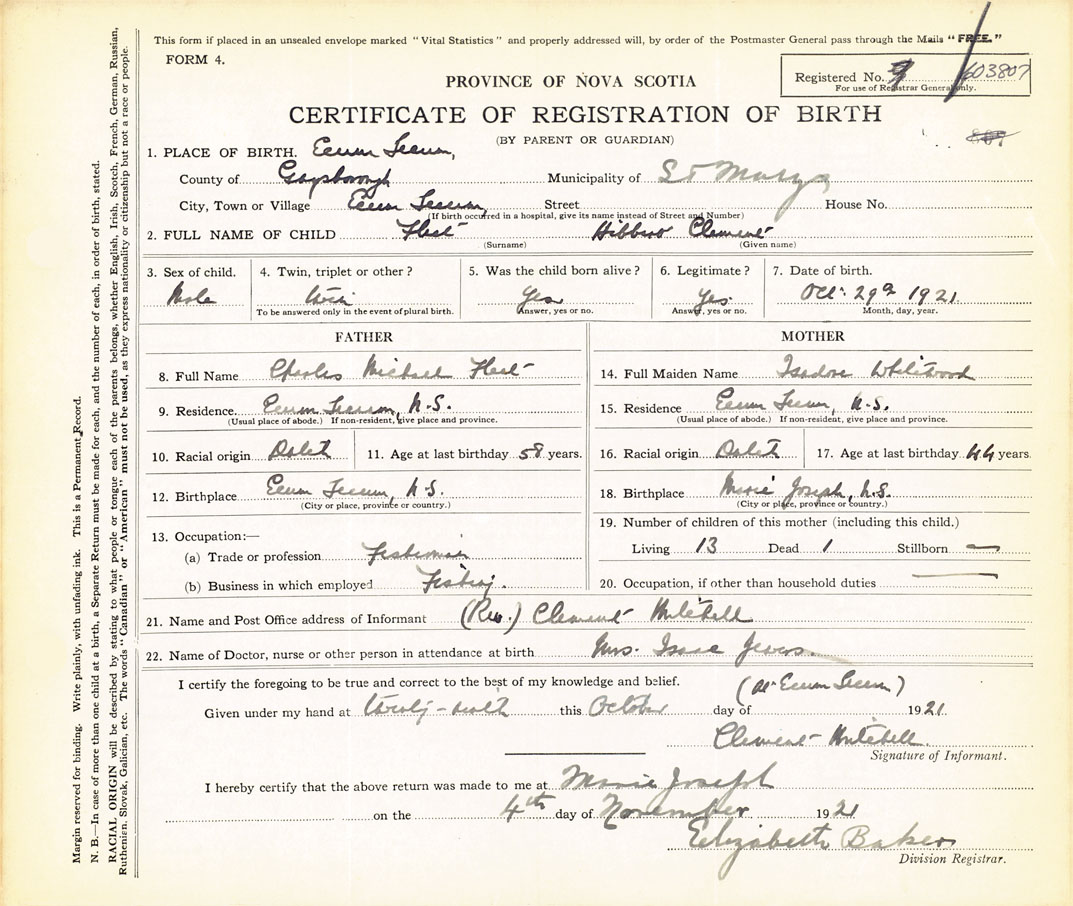 This form if placed in an unsealed envelope marked "Vital Statistics" and properly addressed will, by order of the Postmaster General pass through the Mails "FREE."
FORM 4.
Registered No. 9 603807
For use of Registrar General only.
PROVINCE OF NOVA SCOTIA
CERTIFICATE OF REGISTRATION OF BIRTH
(BY PARENT OR GUARDIAN)
1. PLACE OF BIRTH. Ecum Secum,
County of Guysborough Municipality of St Marys
City, Town or Village Ecum Secum, Street House No.
(If birth occurred in a hospital, give its name instead of Street and Number)
2. FULL NAME OF CHILD Fleet Hibbert Clement
(Surname) (Given name)
3. Sex of child. 4. Twin, triplet or other? 5. Was the child born alive? 6. Legitimate? 7. Date of birth.
Male Twin Yes Yes. Oct. 29th 1921
To be answered only in the event of plural birth. Answer, yes or no. Answer, yes or no. Month, day, year.
FATHER MOTHER
8. Full Name Charles Michael Fleet 14. Full Maiden Name Isadore Whitewood
9. Residence. Ecum Secum, N.S. 15. Residence Ecum Secum, N.S.
(Usual place of abode.) If non-resident, give place and province. (Usual place of abode.) If non-resident, give place and province.
10. Racial origin Dutch 11. Age at last birthday 58 years. 16. Racial origin Dutch 17. Age at last birthday 44 years.
12. Birthplace Ecum Secum, N.S. 18. Birthplace Marie Joseph, N.S.
(City or place, province or country.) (City or place, province or country.)
13. Occupation:— 19. Number of children of this mother (including this child.)
(a) Trade or profession Fisherman Living 13 Dead 1 Stillborn —
(b) Business in which employed Fishing. 20. Occupation, if other than household duties —
21. Name and Post Office address of Informant (Rev.) Clement Mitchell
22. Name of Doctor, nurse or other person in attendance at birth Mrs. Isaac Jewers.
I certify the foregoing to be true and correct to the best of my knowledge and belief. (At Ecum Secum)
Given under my hand at this October day of 1921
Clement Mitchell.
Signature of Informant.
I hereby certify that the above return was made to me at Marie Joseph
on the 4th day of November 1921
Elizabeth Baker
Division Registrar.
Margin reserved for binding. Write plainly, with unfading ink. This is a Permanent Record.
N. B.—In case of more than one child at a birth, a Separate Return must be made for each, and the number of each, in order of birth, stated.
RACIAL ORIGIN will be described by stating to what people or tongue each of the parents belongs, whether English, Irish, Scotch, French, German, Russian,
Ruthenian, Slovak, Galician, etc. The words "Canadian" or "American" must not be used, as they express nationality or citizenship but not a race or people.